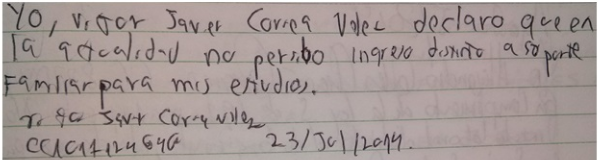 Yo, Victor Javier Correa Velez declaro que en
la actualidad no percibo ingreso distinto a soporte
Familiar para mis estudios.
Javier Correa Velez
23/Jul/2014.